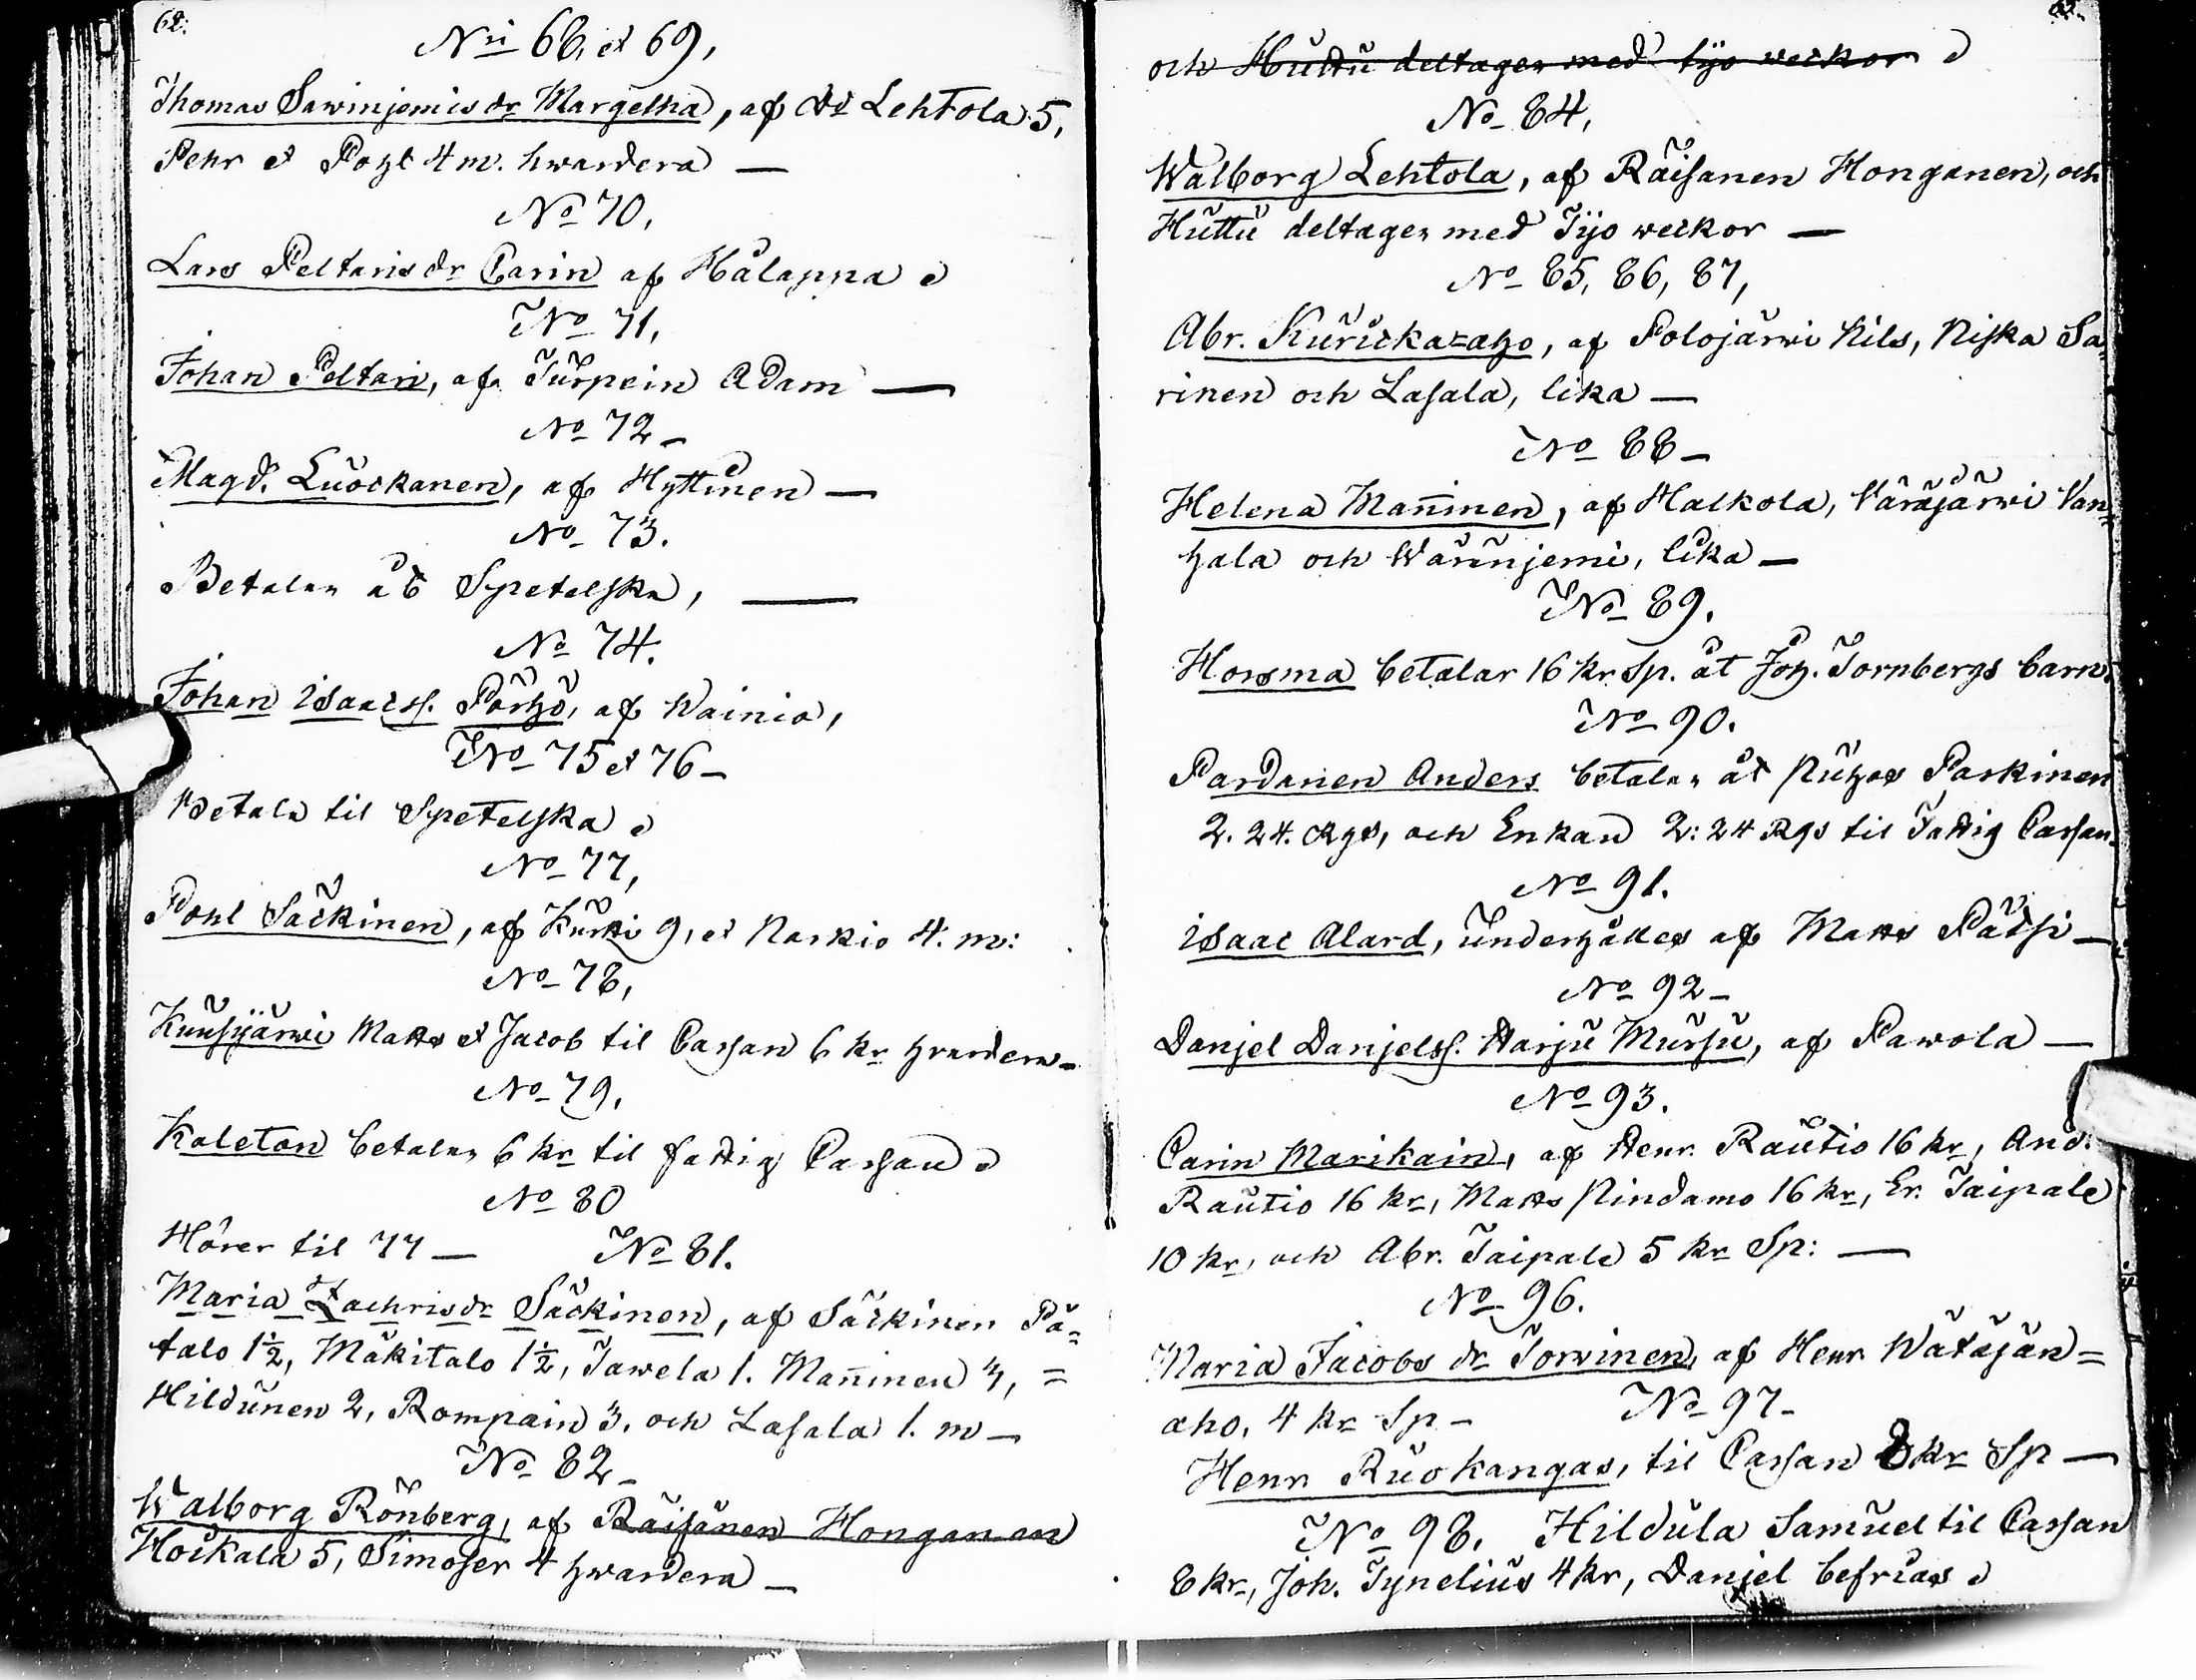 62.
Nri 68, et 69,
Thomas Sawinjemis dr Margetha, af Lehtola 5,
Pehr et Pohl 4 m. hwardera —
No 70,
Lars Peltaris dr Carin af Hålappa
No 71,
Johan Peltari, af Turpein Adam —
No 72 —
Magd. Luockanen, af Hyttinen —
No 73.
Betalar åt Spetelska, —
No 74.
Johan Isaacss. Pörhö, af Wainio,
No 75 et 76 —
Betala til Spetelska
No 77,
Pohl Säckinen, af Kurtti 9, et Narkio 4. m:
No 78,
Kuusijärwi Matts et Jacob til Cassan 6 kr hvardera —
No 79,
Kaleton betalar 6 kr til fattig Cassan
No 80
Hörer til 77 — No 81.
Maria Zachrisdr Säckinen, af Säckinen Pä=
talo 1½, Mäkitalo 1½, Tawela 1. Man̄inen 3, =
Hildunen 2, Rompain 3, och Lasala 1. m —
No 82 —
Walborg Rönberg, af Räisänen Honganen
Hockala 5, Simoser 4 hwardera —
och Huttu deltager med tijo weckor
No 84,
Walborg Lehtola, af Räisanen Honganen, och
Huttu deltager med Tijo weckor —
No 85, 86, 87,
Abr. Kuricka=aho, af Polojärwi Nils, Niska Sa=
rinen och Lasala, lika —
No 88 —
Helena Man̄inen, af Halkola, Väräjärwi Van=
hala och Warinjemi, lika —
No 89.
Horsma betalar 16 kr Sp. åt Joh. Tornbergs barn.
No 90.
Pardanen Anders betalar åt Paskinen
2. 24. Rgs, och Enkan 2: 24 Rgs til Fattig Cassan.
No 91.
Isaac Alard, underhålles af Matts Pätsi —
No 92 —
Danjel Danjelss. Harju Mursu, af Pawola —
No 93.
Carin Marikain, af Henr. Rautio 16 kr, And.
Rautio 16 kr, Matts Nindamo 16 kr, Er. Taipale
10 kr, och Abr. Taipale 5 kr Sp: —
No 96.
Maria Jacobs dr Torwinen, af Henr Watajän=
aho, 4 kr Sp — No 97 —
Henr Ruokangas, til Cassan 8 kr Sp —
No 98, Hildula Samuel til Cassan
8 kr, Joh. Tynelius 4 kr, Danjel befrias